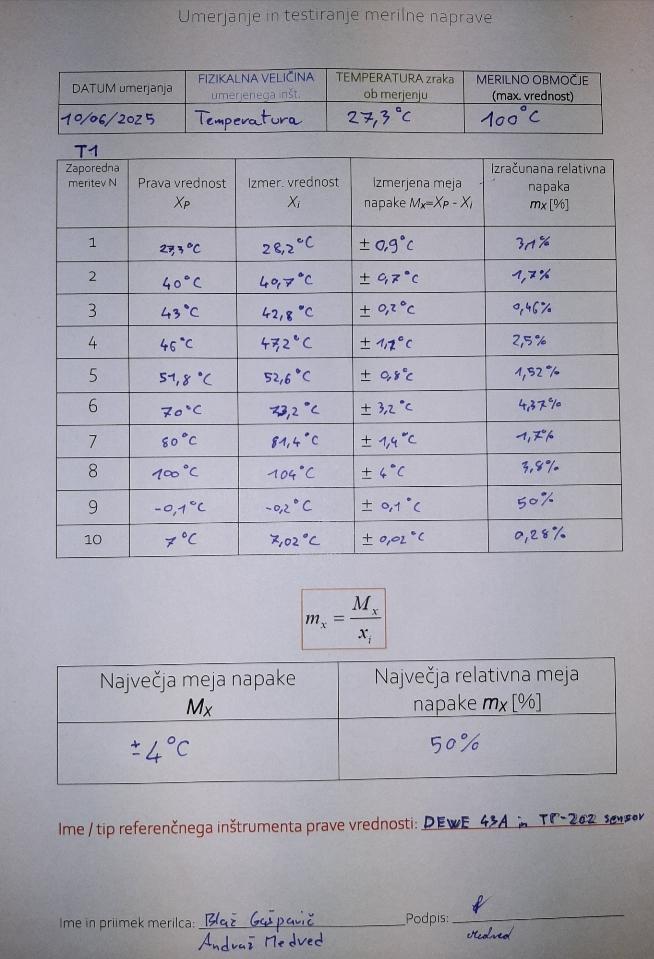 Umerjanje in testiranje merilne naprave
DATUM umerjanja FIZIKALNA VELIČINA umerjenega inšt. TEMPERATURA zraka ob merjenju MERILNO OBMOČJE (max. vrednost)
10/06/2025 Temperatura 27,3°C 100°C
T1
Zaporedna meritev N Prava vrednost XP Izmer. vrednost Xi Izmerjena meja napake Mx=XP - Xi Izračunana relativna napaka mx [%]
1 27,3°C 28,2°C ± 0,9°C 3,1%
2 40°C 40,7°C ± 0,7°C 1,7%
3 43°C 42,8°C ± 0,2°C 0,46%
4 46°C 47,2°C ± 1,2°C 2,5%
5 51,8°C 52,6°C ± 0,8°C 1,52%
6 70°C 73,2°C ± 3,2°C 4,37%
7 80°C 81,4°C ± 1,4°C 1,7%
8 100°C 104°C ± 4°C 3,8%
9 -0,1°C -0,2°C ± 0,1°C 50%
10 7°C 7,02°C ± 0,02°C 0,28%
mx = Mx / xi
Največja meja napake Mx Največja relativna meja napake mx [%]
±4°C 50%
Ime / tip referenčnega inštrumenta prave vrednosti: DEWE 43A in TP-202 sensor
Ime in priimek merilca: Blaž Gašparič Podpis:
Andraž Medved Medved